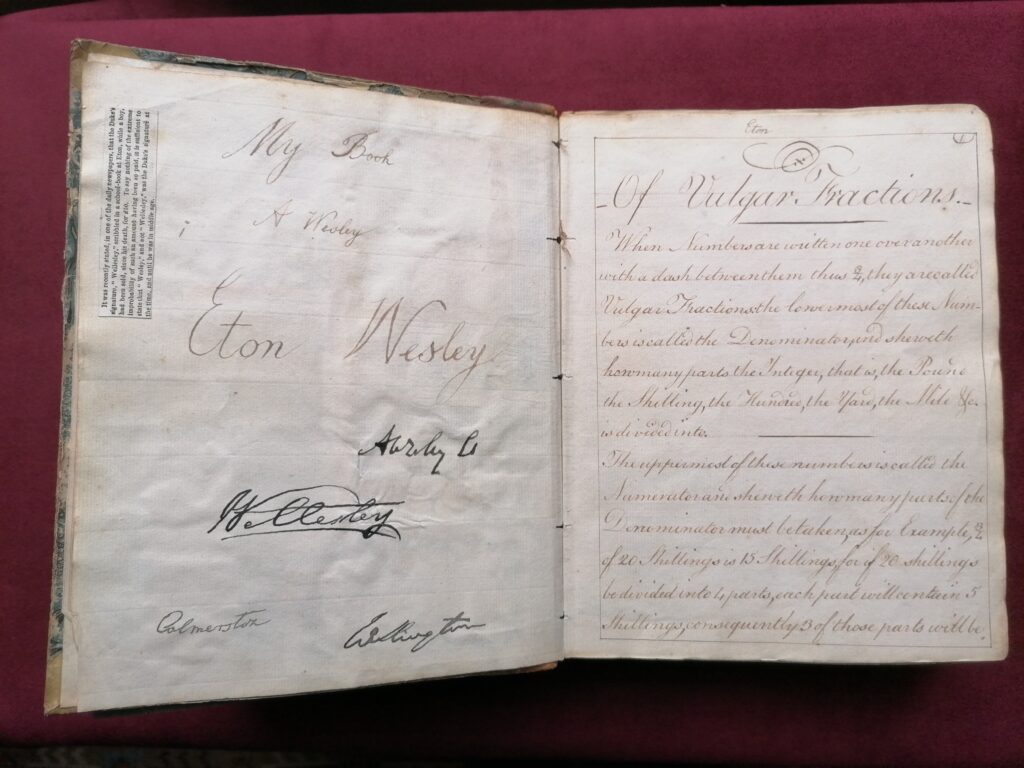 It was recently stated, in one of the daily newspapers, that the Duke's
signature, "Wellesley," scribbled in a school-book at Eton, while a boy,
had been sold, since his death, for £10. To say nothing of the extreme
improbability of such an amount having been so paid, it is sufficient to
state that "Wesley," and not "Wellesley," was the Duke's signature at
the time, and until he was in middle age.
My Book
A Wesley
Eton Wesley
Wellesley
Palmerston
Wellington
Eton
1
Of Vulgar Fractions.
When Numbers are written one over another
with a dash between them thus 3/4, they are called
Vulgar Fractions, the lowermost of these Num-
bers is called the Denominator, and sheweth
how many parts the Integer, that is, the Pound
the Shilling, the Hundred, the Yard, the Mile &c.
is divided into.
The uppermost of these numbers is called the
Numerator and sheweth how many parts of the
Denominator must be taken, as for Example, 3/4
of 20 Shillings is 15 Shillings, for if 20 shillings
be divided into 4 parts, each part will contain 5
Shillings, consequently 3 of those parts will be